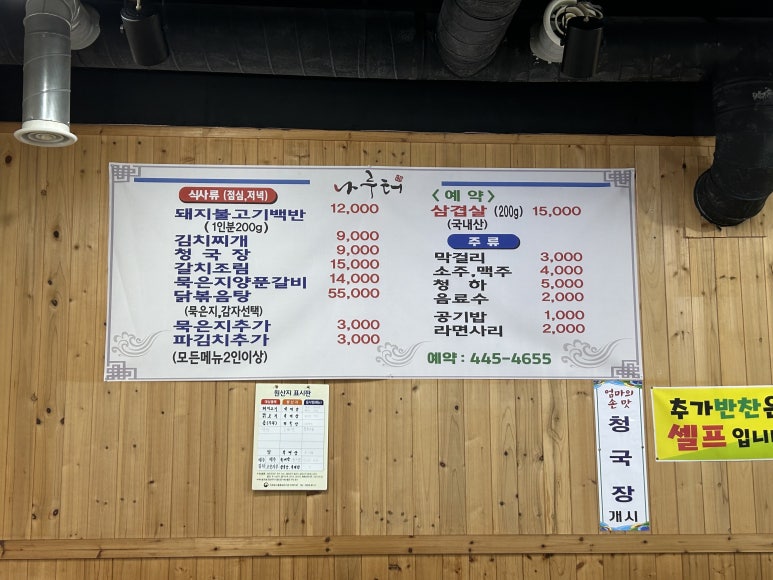 나루터
식사류 (점심,저녁)
돼지불고기백반 12,000
(1인분200g)
김치찌개 9,000
청국장 9,000
갈치조림 15,000
묵은지양푼갈비 14,000
닭볶음탕 55,000
(묵은지,감자선택)
묵은지추가 3,000
파김치추가 3,000
(모든메뉴2인이상)
<예약>
삼겹살 (200g) 15,000
(국내산)
주류
막걸리 3,000
소주,맥주 4,000
청하 5,000
음료수 2,000
공기밥 1,000
라면사리 2,000
예약 : 445-4655
원산지 표시판
엄마의
손맛
청국장
개시
추가반찬은
셀프입니